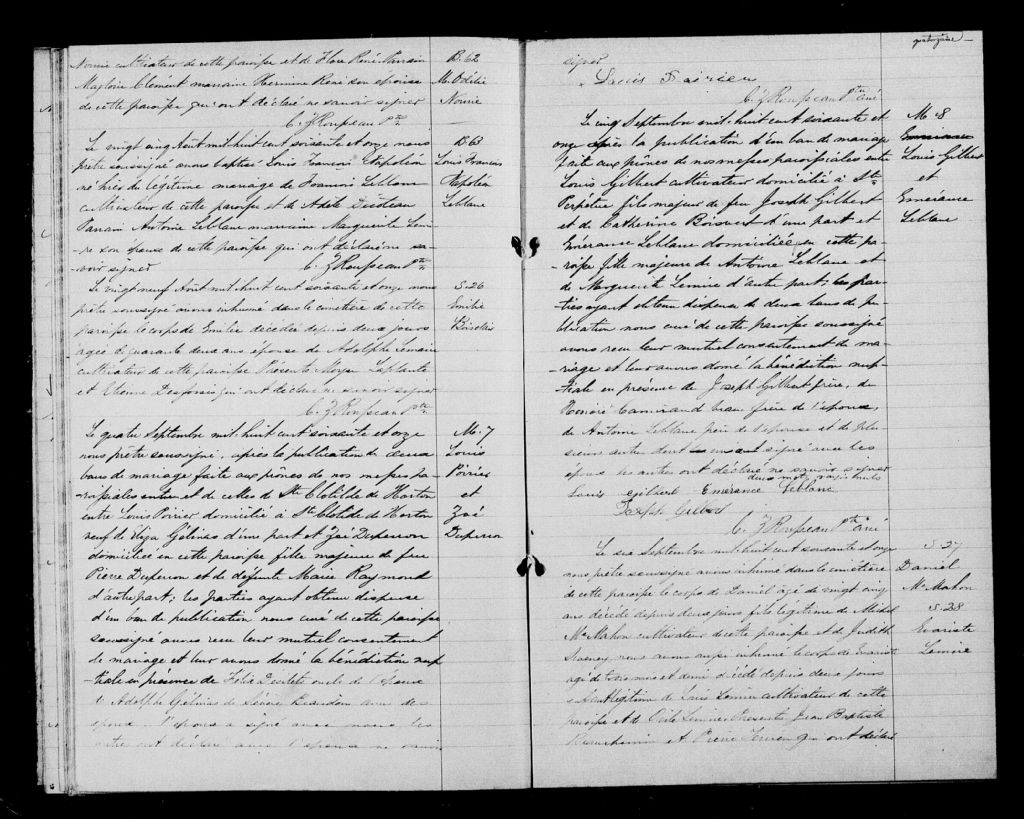 Nourie cultivateur de cette paroisse et de Flore René Parrain
Clément marraine Hermine René son épouse
de cette paroisse qui ont déclaré ne savoir signer
C. Z. Rousseau Ptre
B. 62
M. Odélie
Nourie
Le vingt cinq Aout mil huit cent soixante et onze nous
prêtre soussigné avons baptisé Louis Francois Napoléon
né hier du légitime mariage de Francois Leblanc
cultivateur de cette paroisse et de Adèle
Parrain Antoine Leblanc marraine Marguerite Lemi-
-re son épouse de cette paroisse qui ont déclaré ne sa-
-voir signer
C. Z. Rousseau Ptre
B. 63
Louis Francois
Napoléon
Leblanc
Le vingt neuf Aout mil huit cent soixante et onze nous
prêtre soussigné avons inhumé dans le cimetière de cette
paroisse le corps de Emilie décédée depuis deux jours
agée de quarante deux ans épouse de Adolphe Lemire
cultivateur de cette paroisse Présents Moyse Laplante
et Etienne qui ont déclaré ne savoir signer
C. Z. Rousseau Ptre
S. 26
Emilie
Boisclair
Le quatre Septembre mil huit cent soixante et onze
nous prêtre soussigné, après la publication de deux
bans de mariage faite aux prônes de nos messes pa-
-roissiales entre et de celles de Ste Clotilde de Horton
entre Louis Poirier domicilié à St Clotilde de Horton
veuf de Eliza Gélinas d'une part et Zoé Duperron
domiciliée en cette paroisse fille majeure de feu
Pierre Duperron et de défunte Marie Raymond
d'autre part; les parties ayant obtenu dispense
d'un ban de publication nous curé de cette paroisse
soussigné avons recu leur mutuel consentement
de mariage et leur avons donné la bénédiction nup
-tiale en présence de Félix oncle de l'époux
Adolphe Gélinas de Sévère
époux l'époux a signé avec nous les
autres ont déclaré avec l'épouse ne savoir
M. 7
Louis
Poirier
et
Zoé
Duperron
quatorzième
signer
Louis Poirier
C. Z. Rousseau Ptre curé
Le cinq Septembre mil huit cent soixante et
onze après la publication d'un ban de mariage
fait aux prônes de nos messes paroissiales entre
Louis Gilbert cultivateur domicilié à Ste
Perpétue fils majeur de feu Joseph Gilbert
et de Catherine Boisvert d'une part et
Emérance Leblanc domiciliée en cette pa-
-roisse fille majeure de Antoine Leblanc et
de Marguerite Lemire d'autre part; les par-
-ties ayant obtenu dispense de deux bans de pu-
-blication nous curé de cette paroisse soussigné
avons recu leur mutuel consentement de ma-
-riage et leur avons donné la bénédiction nup-
-tiale en présence de Joseph Gilbert frère, de
Honoré Camirand beau frère de l'époux,
de Antoine Leblanc père de l'épouse et de plu-
-sieurs autres dont signé avec les
époux les autres ont déclaré ne savoir signer
deux mots rayés nuls
Louis Gilbert Emérance Leblanc
Joseph Gilbert
C. Z. Rousseau Ptre curé
M. 8
Louis Gilbert
et
Emérance
Leblanc
Le six Septembre mil huit cent soixante et onze
nous prêtre soussigné avons inhumé dans le cimetière
de cette paroisse le corps de Daniel agé de vingt cinq
ans décédé depuis deux jours fils légitime de Michel
McMahon cultivateur de cette paroisse et de Judith
nous avons aussi inhumé le corps de Evariste
agé de trois mois et demi décédé depuis deux jours
enfant légitime de Louis Lemire cultivateur de cette
paroisse et de Odile Lemire Présents Jean Baptiste
Beauchemin et Pierre qui ont déclaré
S. 27
Daniel
McMahon
S. 28
Evariste
Lemire